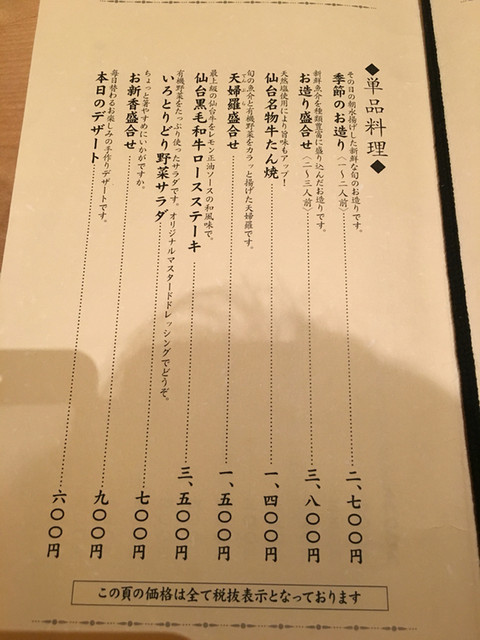 ◆単品料理◆
その日の朝水揚げした新鮮な旬のお造りです。
季節のお造り〈一〜二人前〉 二、七〇〇円
新鮮魚介を種類豊富に盛り込んだお造りです。
お造り盛合せ〈二〜三人前〉 三、八〇〇円
天然塩使用により旨味もアップ!
仙台名物牛たん焼 一、四〇〇円
旬の魚介と有機野菜をカラッと揚げた天婦羅です。
天婦羅盛合せ 一、五〇〇円
最上級の仙台牛をレモン正油ソースの和風味で。
仙台黒毛和牛ロースステーキ 三、五〇〇円
有機野菜をたっぷり使ったサラダです。オリジナルマスタードドレッシングでどうぞ。
いろとりどり野菜サラダ 七〇〇円
ちょっと箸やすめにいかがですか。
お新香盛合せ 九〇〇円
毎日替わるお楽しみの手作りデザートです。
本日のデザート 六〇〇円
この頁の価格は全て税抜表示となっております